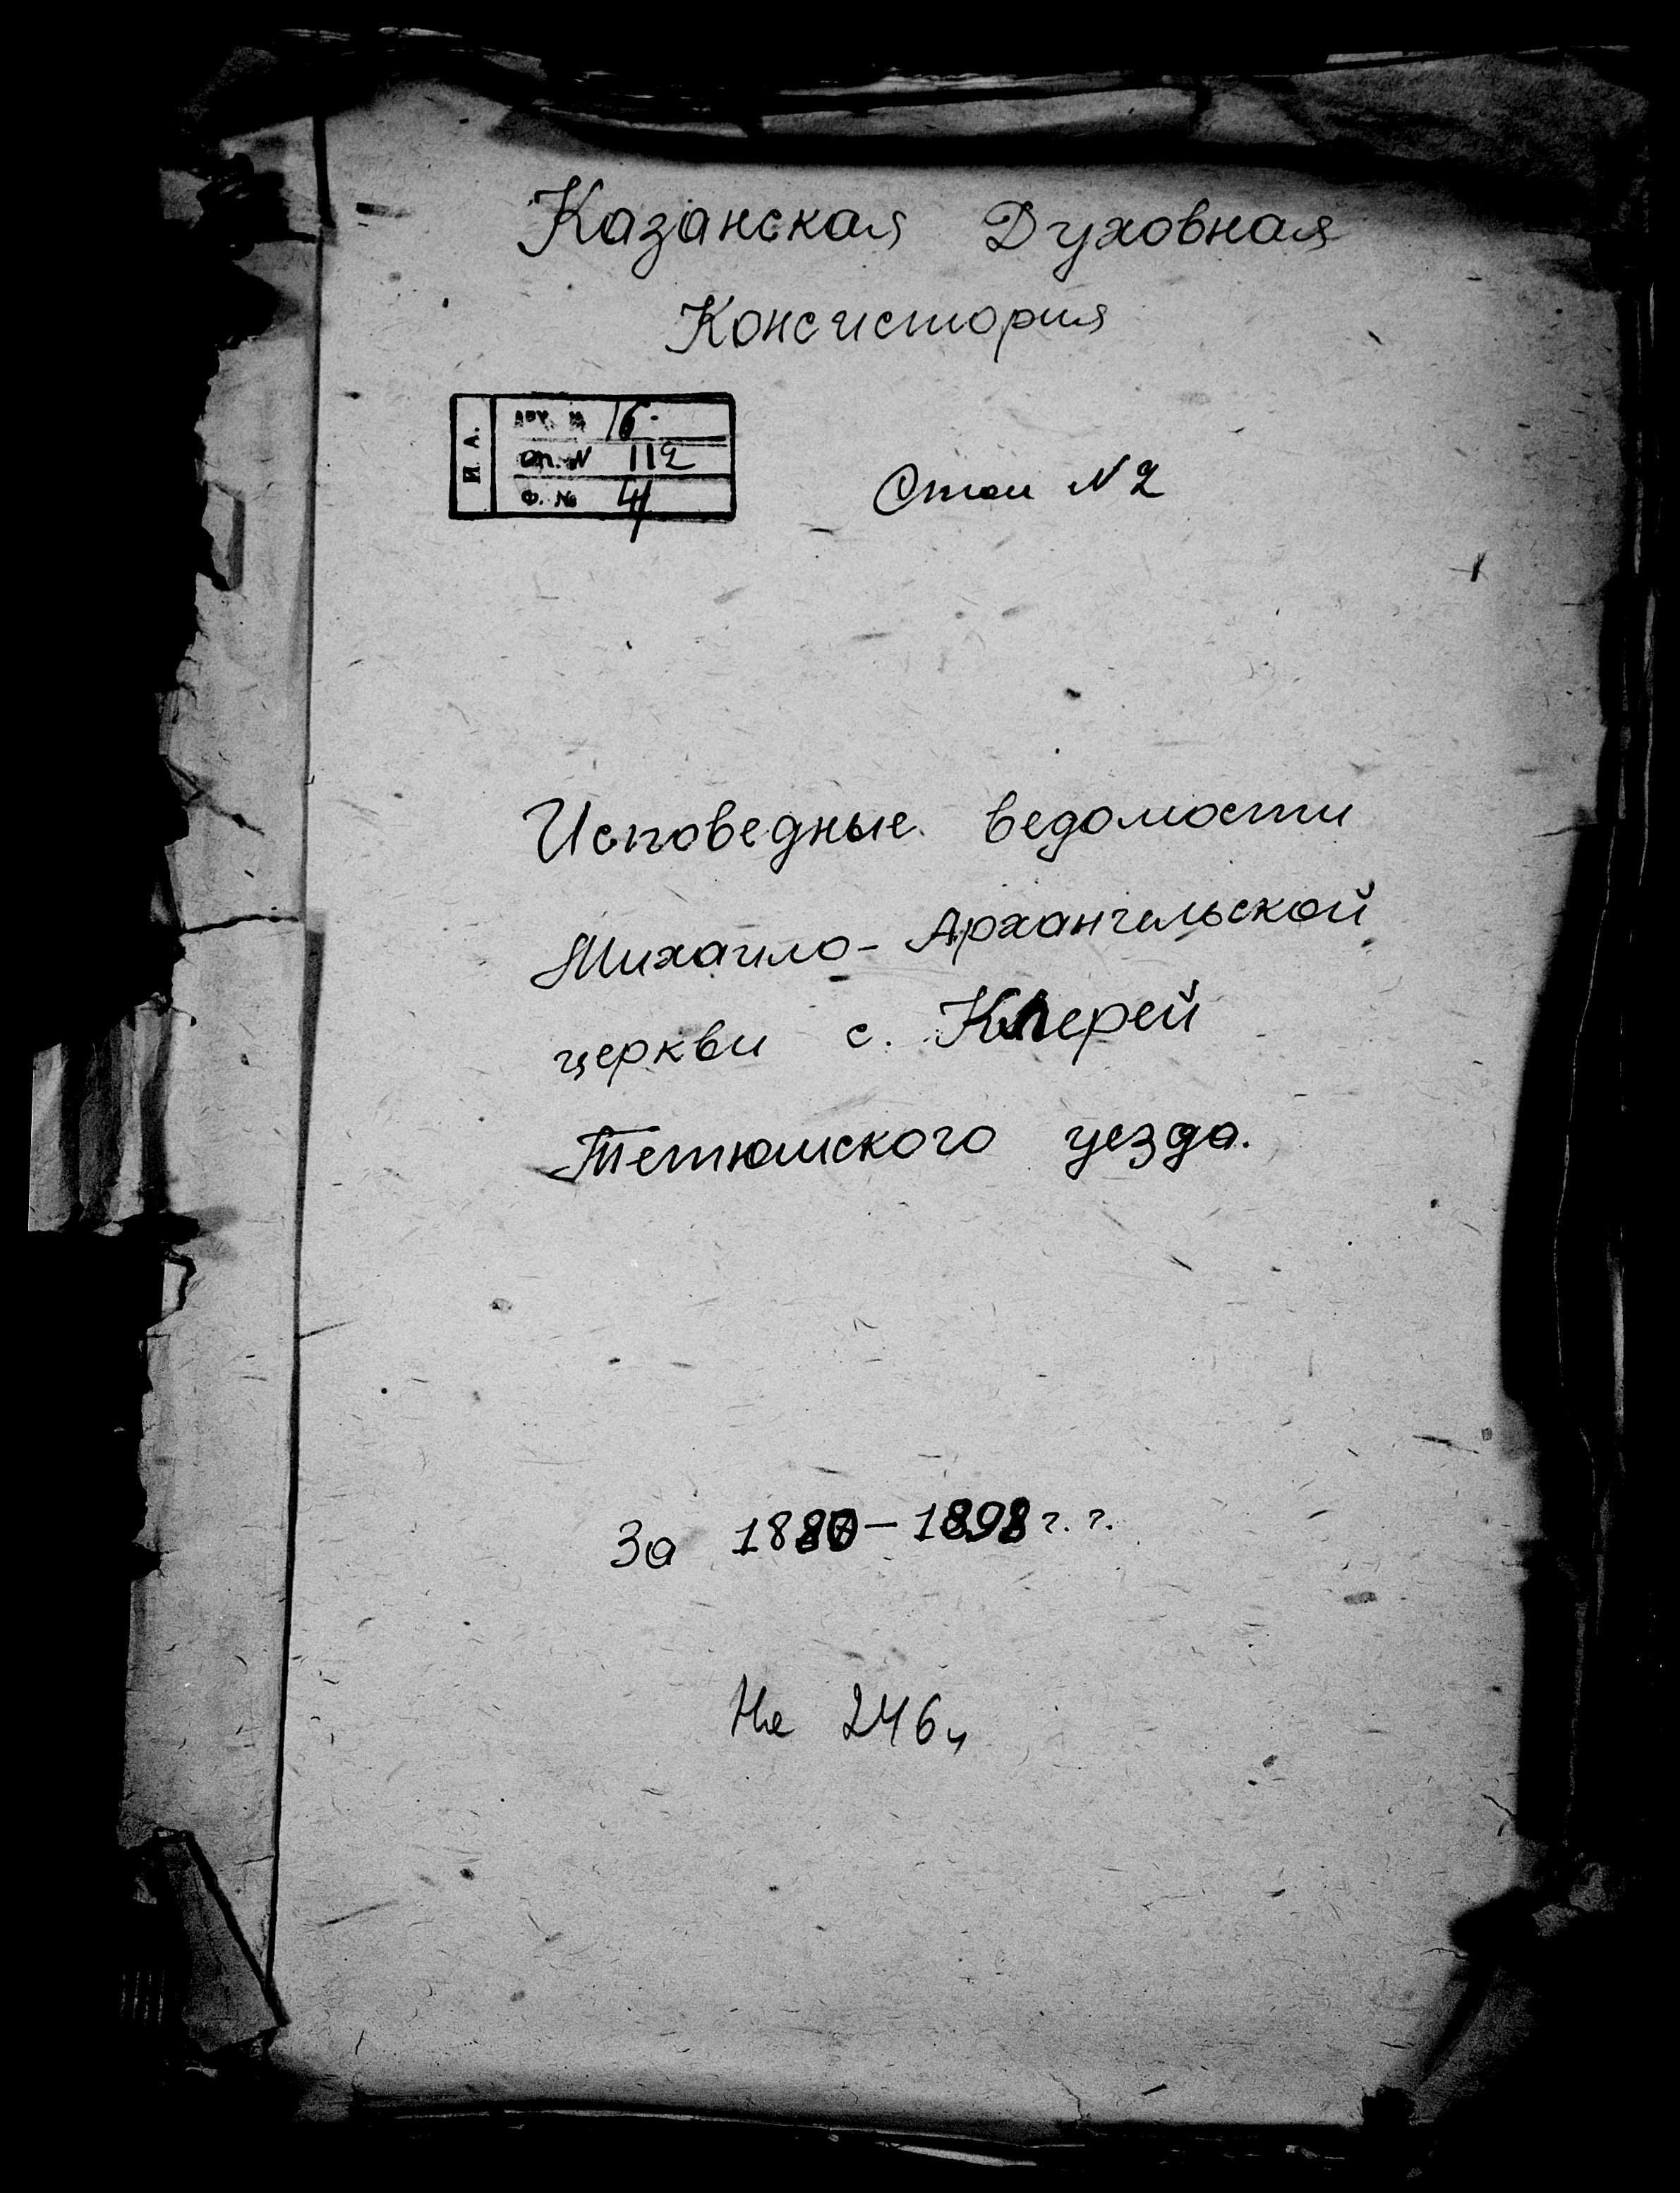 Казанская Духовная
Консистория
И. А.
АРХ. № 16.
оп. № 112
Ф. № 4
Стол N 2
Исповедные ведомости
Михаило-Архангельской
церкви с.
Тетюшского уезда.
За 1880-1898 г. г.
На 246